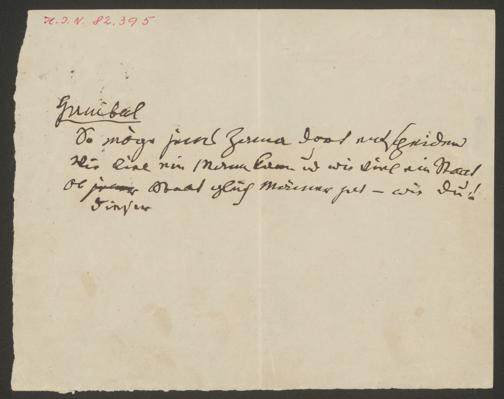 H.I.N. 82.395
Hannibal
So möge jenes Zama dort entscheiden
Wie viel ein Mann kann und wie viel ein Staat
Ob jener Staat Männer hat – wie du!
dieser